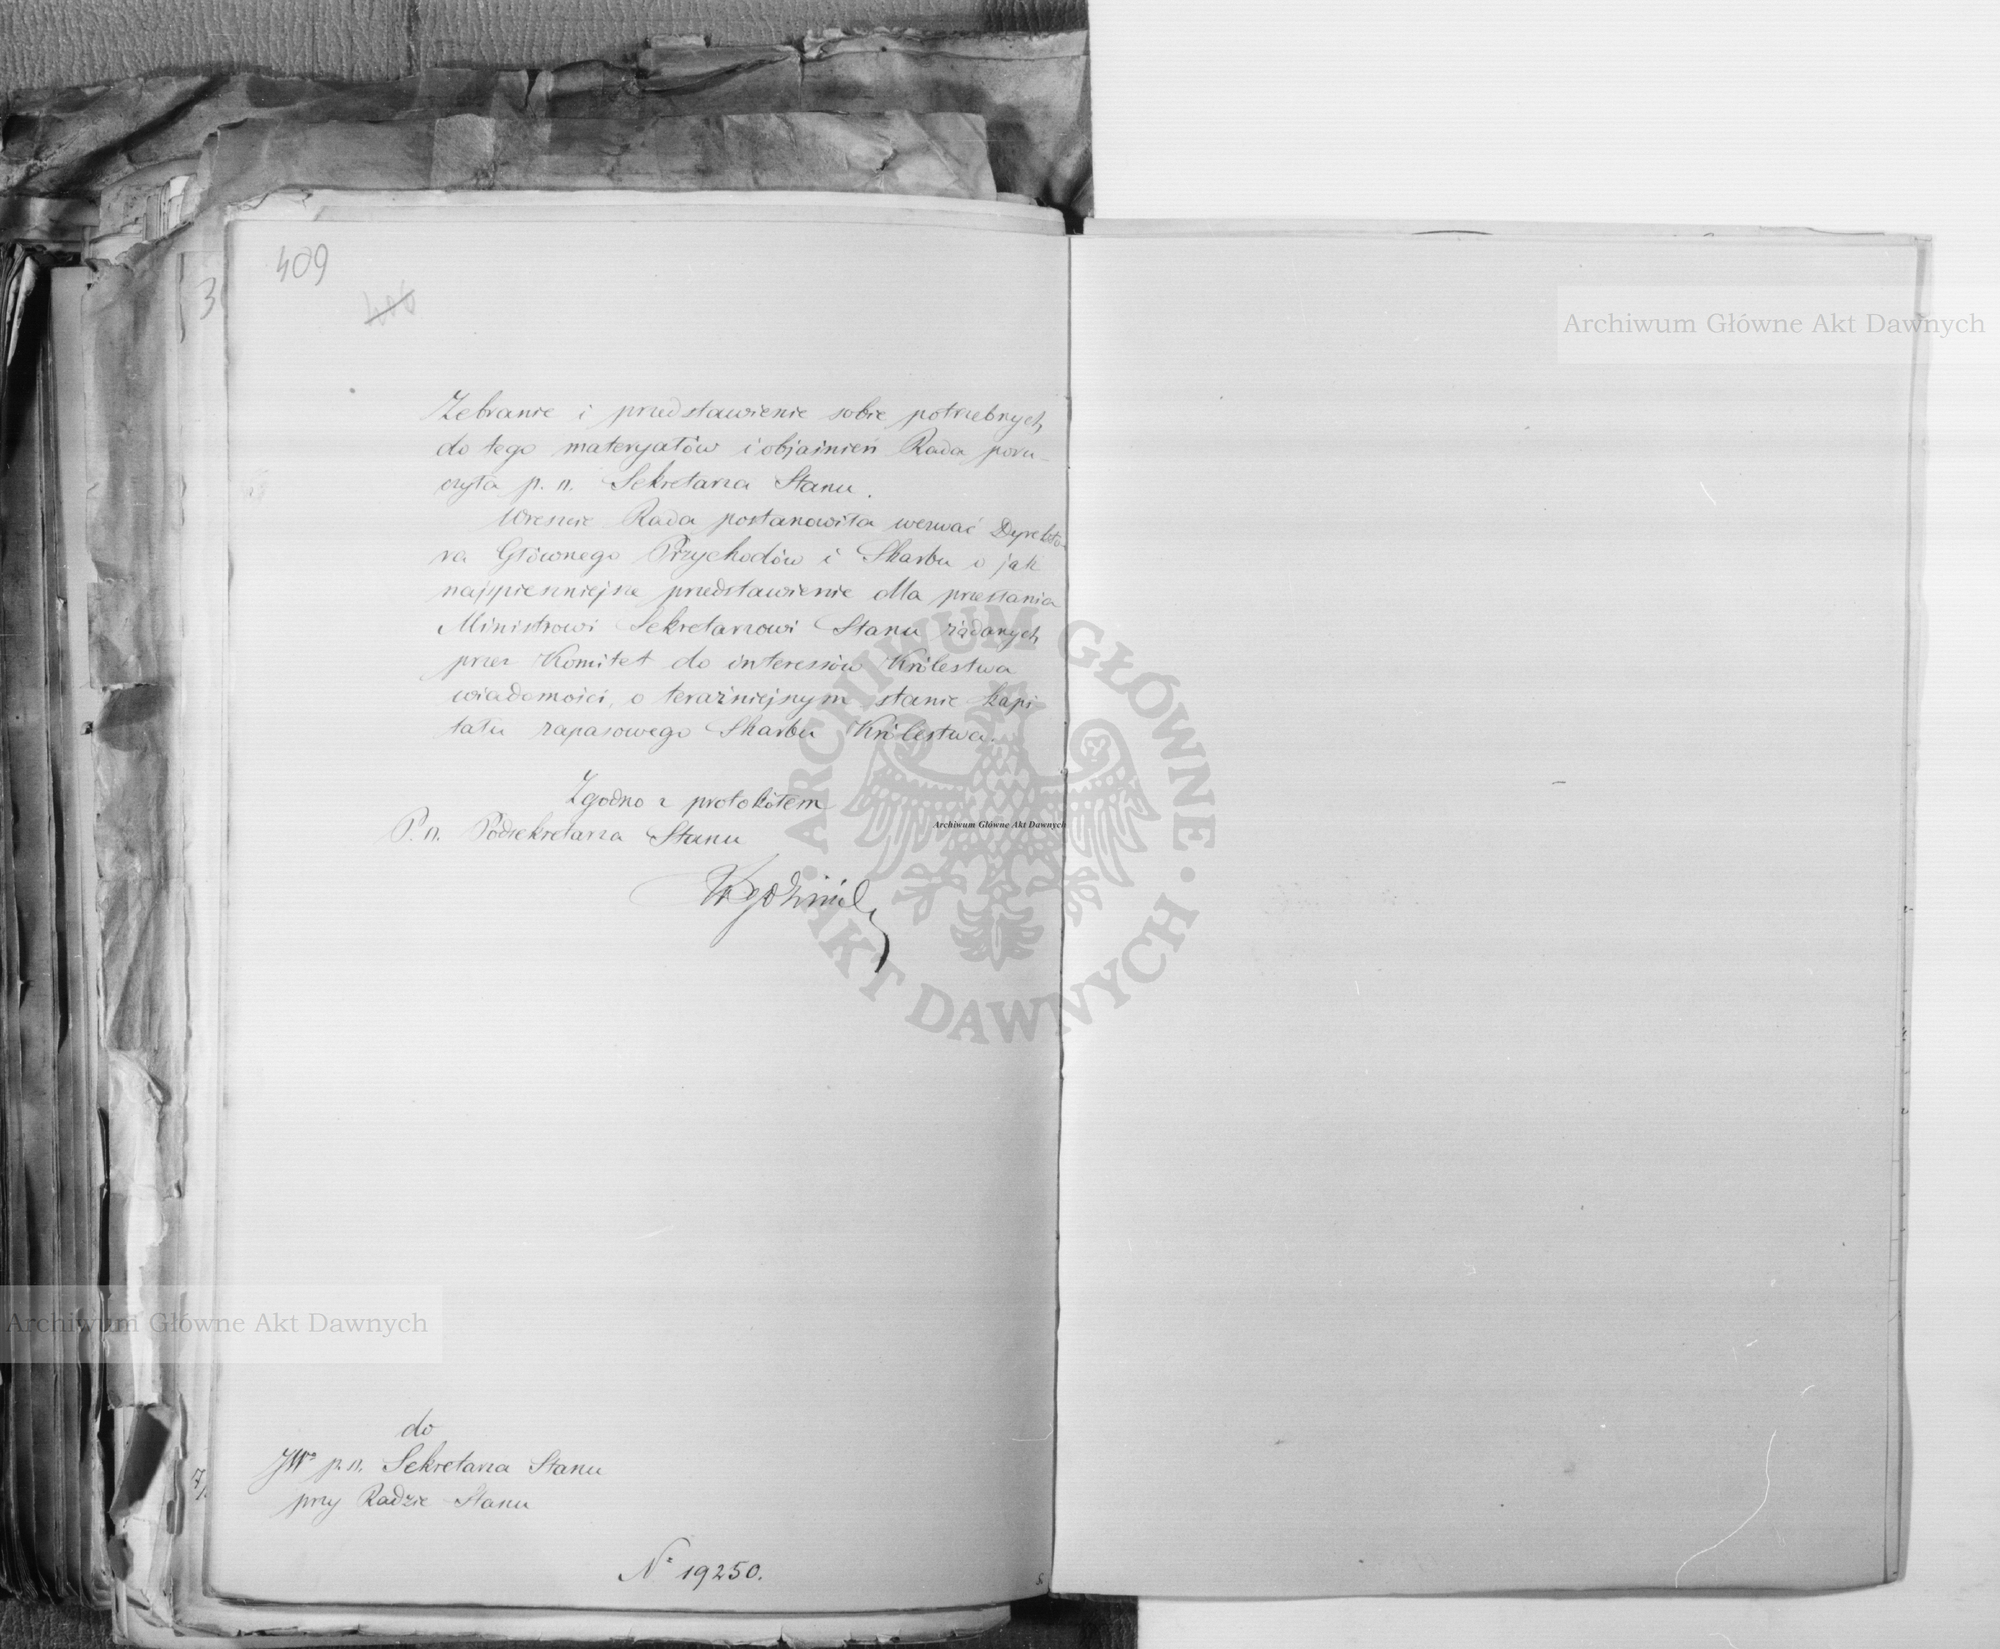 409
Zebranie i przedstawienie sobie potrzebnych
do tego materyałów i objaśnień Rada poru-
czyła p. o. Sekretarza Stanu.
Wreszcie Rada postanowiła wezwać Dyrekto-
ra Głównego Przychodów i Skarbu o jak
najspieszniejsze przedstawienie dla przesłania
Ministrowi Sekretarzowi Stanu żądanych
przez Komitet do interessów Królestwa
wiadomości, o teraźniejszym stanie kapi
tału zapasowego Skarbu Królestwa.
Zgodno z protokółem
P. o. Podsekretarza Stanu
do
JWº p. o. Sekretarza Stanu
przy Radzie Stanu
Nº 19250.
Archiwum Główne Akt Dawnych
Archiwum Główne Akt Dawnych
Archiwum Główne Akt Dawnych
ARCHIWUM GŁÓWNE · AKT DAWNYCH ·